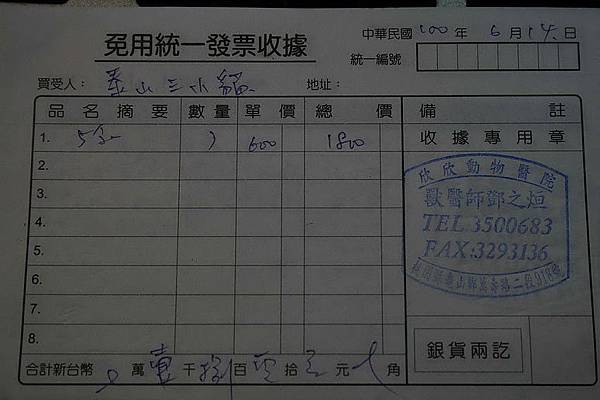 免用統一發票收據
中華民國 100 年 6 月 14 日
統一編號
買受人： 龜山三小貓 地址：
品名摘要 數量 單價 總價 備註
1. 3 600 1800
收據專用章
2.
3.
4.
5.
6.
7.
8.
欣欣動物醫院
獸醫師鄧之烜
TEL:3500683
FAX:3293136
桃園縣龜山鄉萬壽路二段918號
銀貨兩訖
合計新台幣 0 萬 壹 千 捌 百 零 拾 元 角